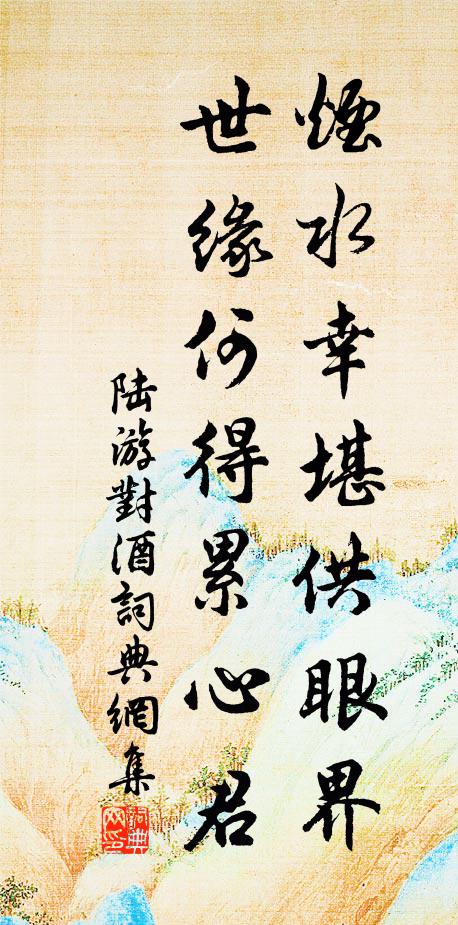 煙水幸堪供眼界
世緣何得累心君
陆游對酒詞典網集
詞典
网印